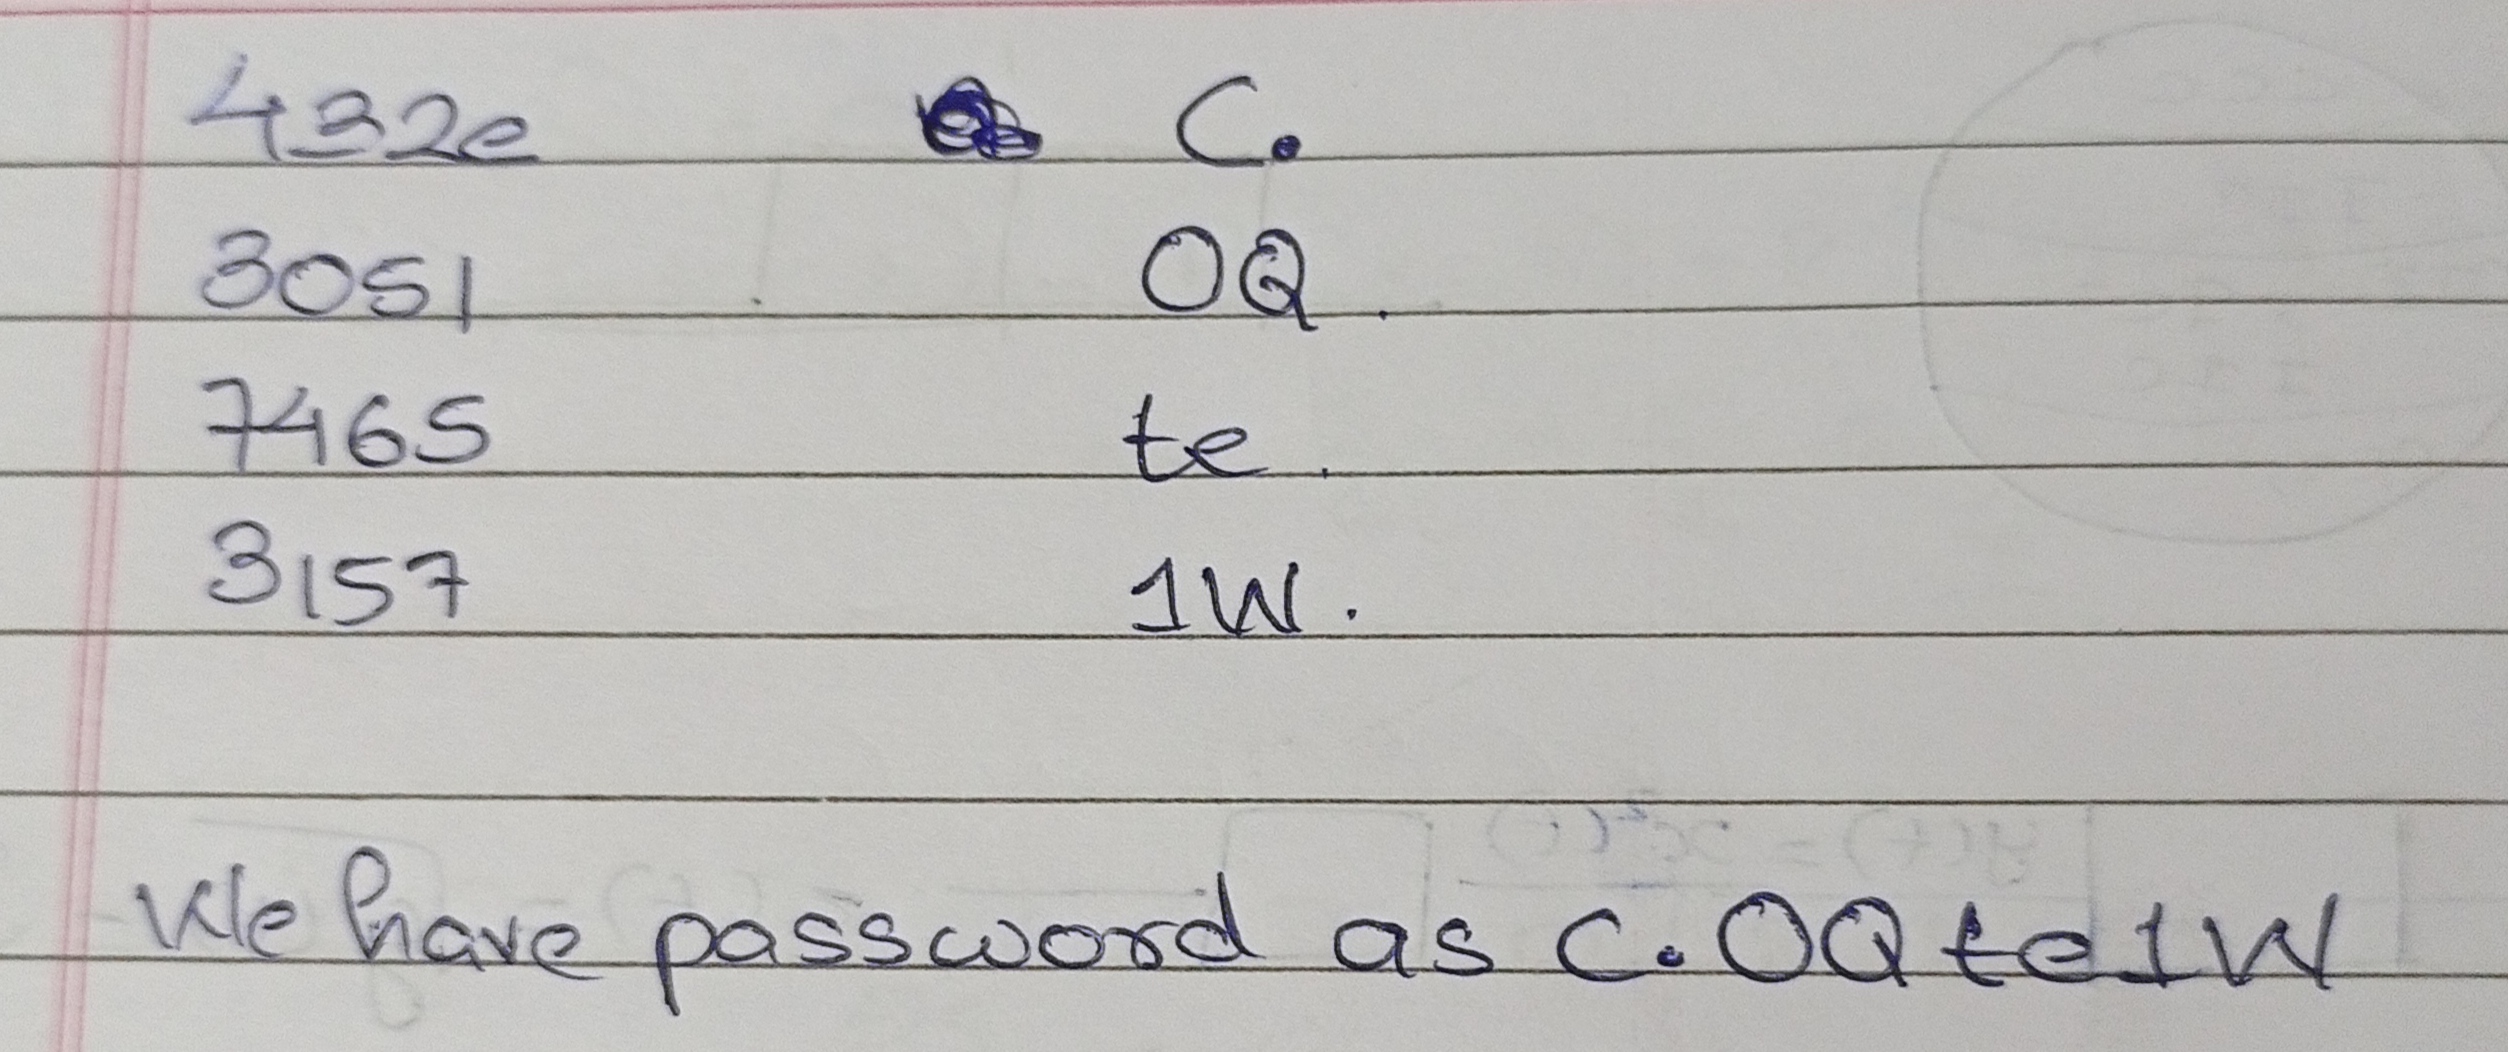 432e C.
3051 OQ.
7465 te.
3157 1W.
We have password as C.OQte1W